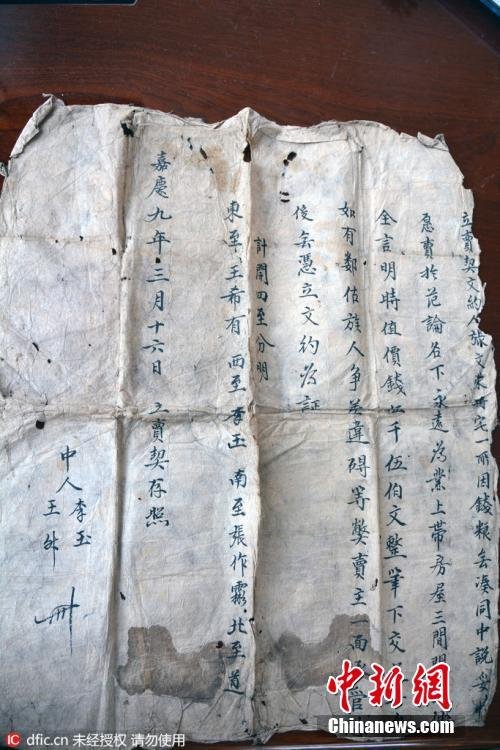 立賣契文約人張文來所宅一所因錢粮無凑同中說妥
愿賣於范論名下永遠為業上帶房屋三間
全言明時值價錢 千伍伯文整筆下交
如有鄰佑族人争差違碍等獘賣主一面 管
後無憑立文約為証
計開四至分明
東至王希有 西至李玉 南至張作霧 北至道
嘉慶九年三月十六日 立賣契存照
中人李玉
王
中新网
Chinanews.com
IC dfic.cn 未经授权 请勿使用